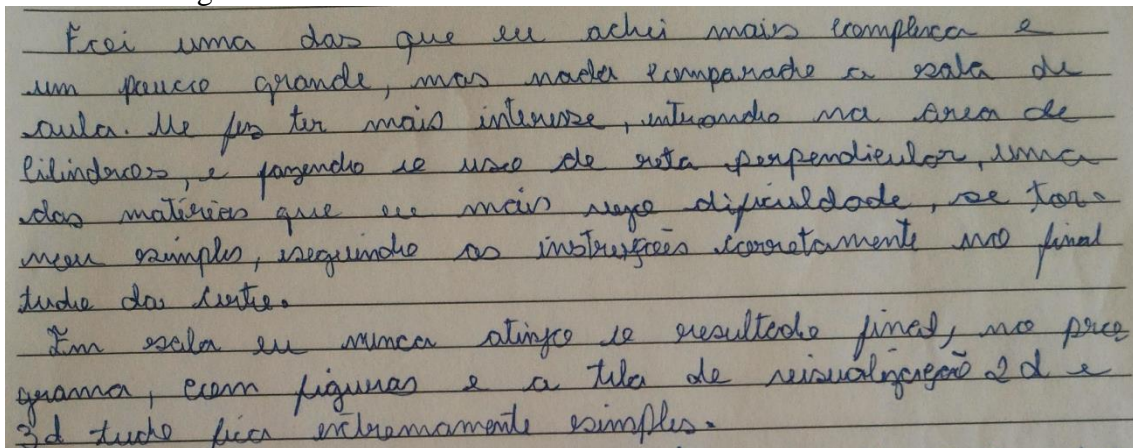 Foi uma das que eu achei mais complexa e
um pouco grande, mas nada comparado a sala de
aula. Me fez ter mais interesse, entrando na área de
cilindros, e fazendo o uso de reta perpendicular, uma
das matérias que eu mais vejo dificuldade, se tor-
nou simples, seguindo as instruções corretamente no final
tudo da certo.
Em sala eu nunca atinjo o resultado final, no pro
grama, com figuras e a tela de visualização 2d e
3d tudo fica extremamente simples.